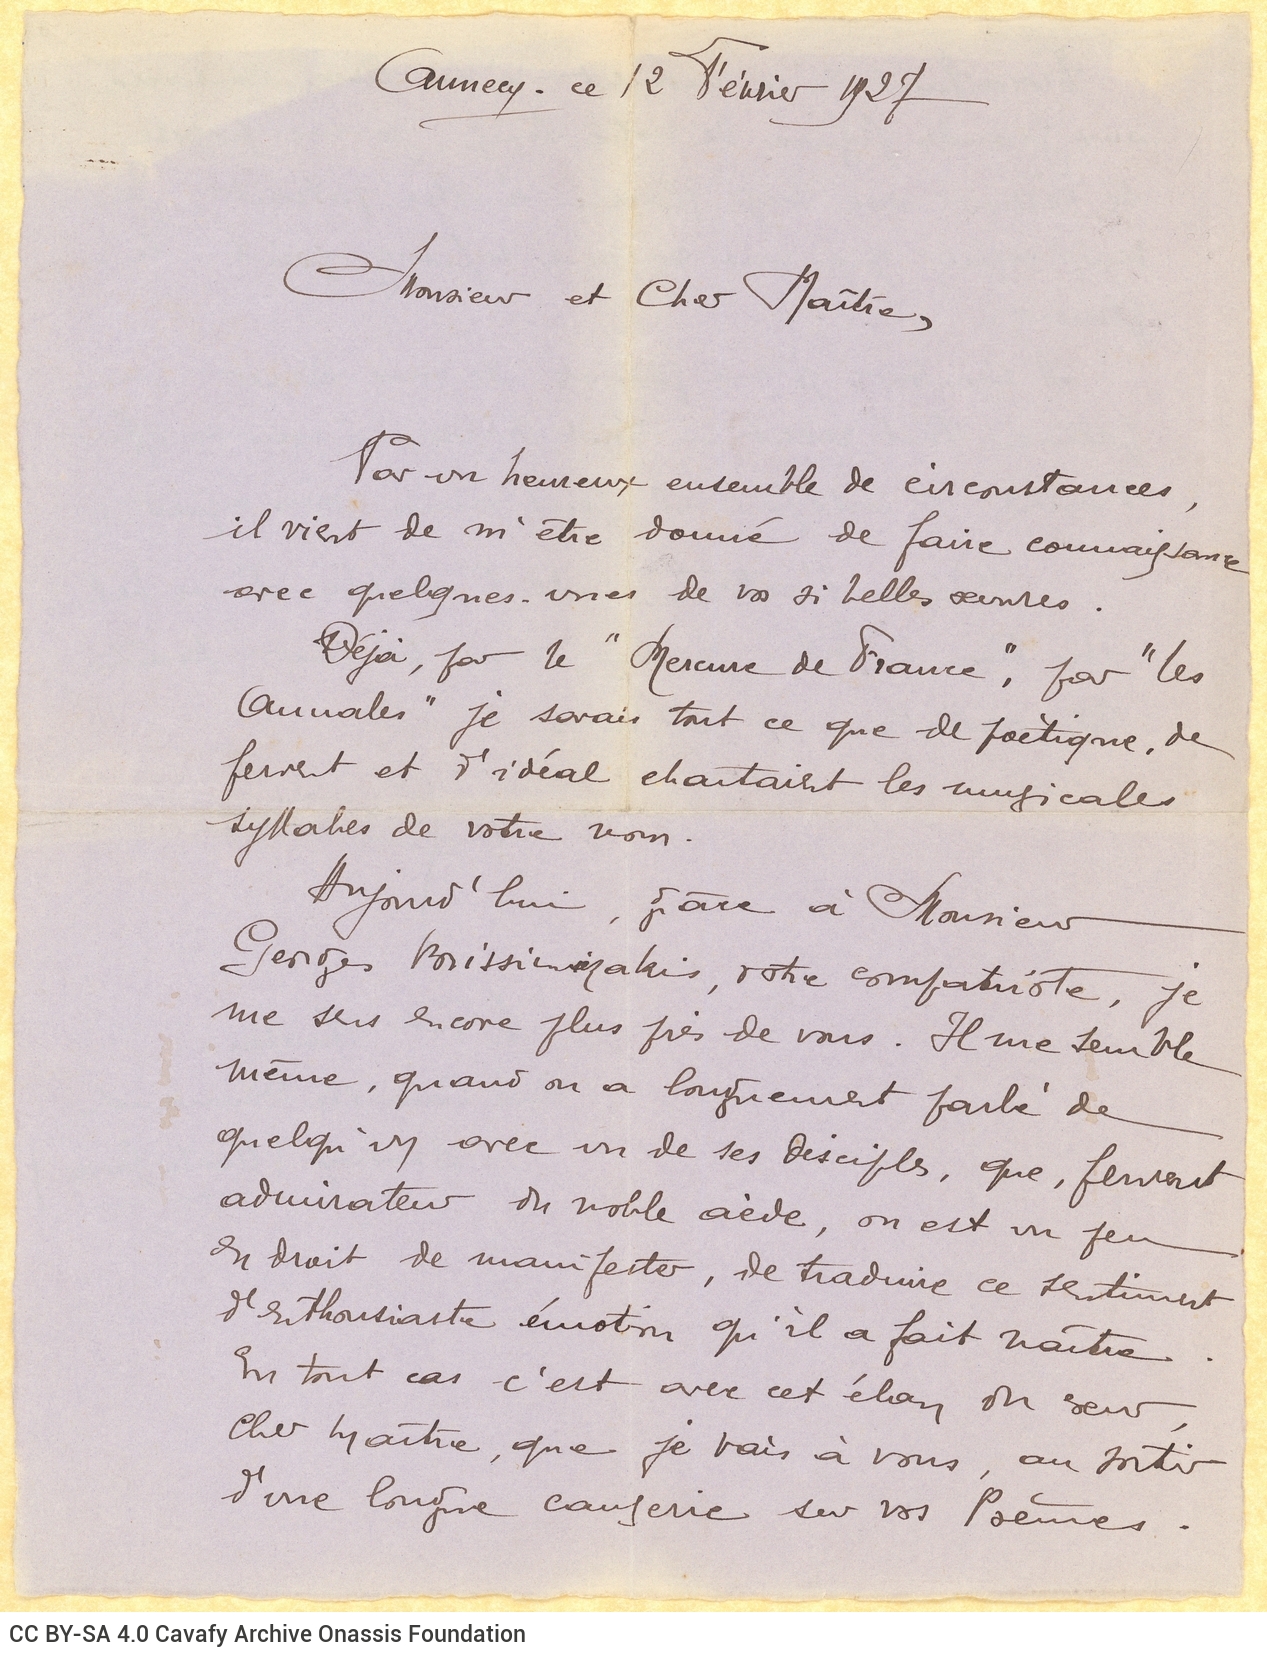 Annecy. ce 12 Février 1927
Monsieur et Cher Maître,
Par un heureux ensemble de circonstances,
il vient de m'être donné de faire connaissance
avec quelques-unes de vos si belles œuvres.
Déjà, par le "Mercure de France", par "les
Annales" je savais tout ce que de poëtique, de
fervent et d'idéal chantaient les musicales
syllabes de votre nom.
Aujourd'hui, grâce à Monsieur
Georges, votre compatriote, je
me sens encore plus près de vous. Il me semble
même, quand on a longuement parlé de
quelqu'un avec un de ses disciples, que, fervent
admirateur du noble aède, on est un peu
en droit de manifester, de traduire ce sentiment
d'enthousiaste émotion qu'il a fait naître.
En tout cas c'est avec cet élan du cœur,
Cher Maître, que je vais à vous, au sortir
d'une longue causerie sur vos Poêmes.
CC BY-SA 4.0 Cavafy Archive Onassis Foundation